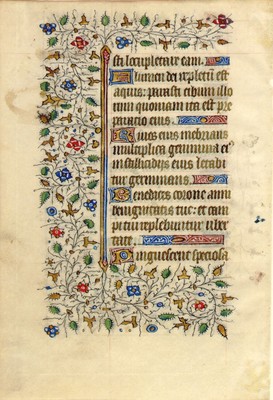 sti locupletare eam.
Flumen dei repletū est
aquis: parasti cibum illo
rum quoniam ita est pre
paracio eius.
Riuos eius inebrians
multiplica genimina ei⁹
in stillicidijs eius letabi
tur germinans.
Benedices corone anni
benignitatis tue: et cam
pi tui replebuntur uber
tate.
Pinguescent speciosa